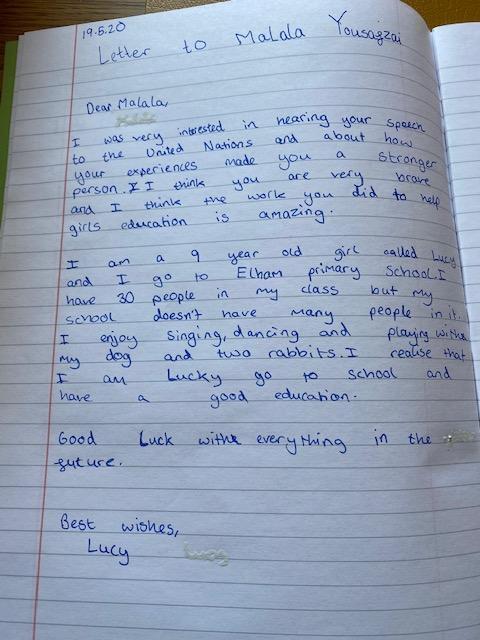 19.5.20
Letter to Malala Yousagzai
Dear Malala,
I was very intrested in hearing your speech
to the United Nations and about how
your experiences made you a stronger
person. I think you are very brave
and I think the work you did to help
girls education is amazing.
I am a 9 year old girl called Lucy
and I go to Elham primary school. I
have 30 people in my class but my
school doesn't have many people in it.
I enjoy singing, dancing and playing with
my dog and two rabbits. I realise that
I am Lucky go to school and
have a good education.
Good Luck with everything in the
future.
Best wishes,
Lucy